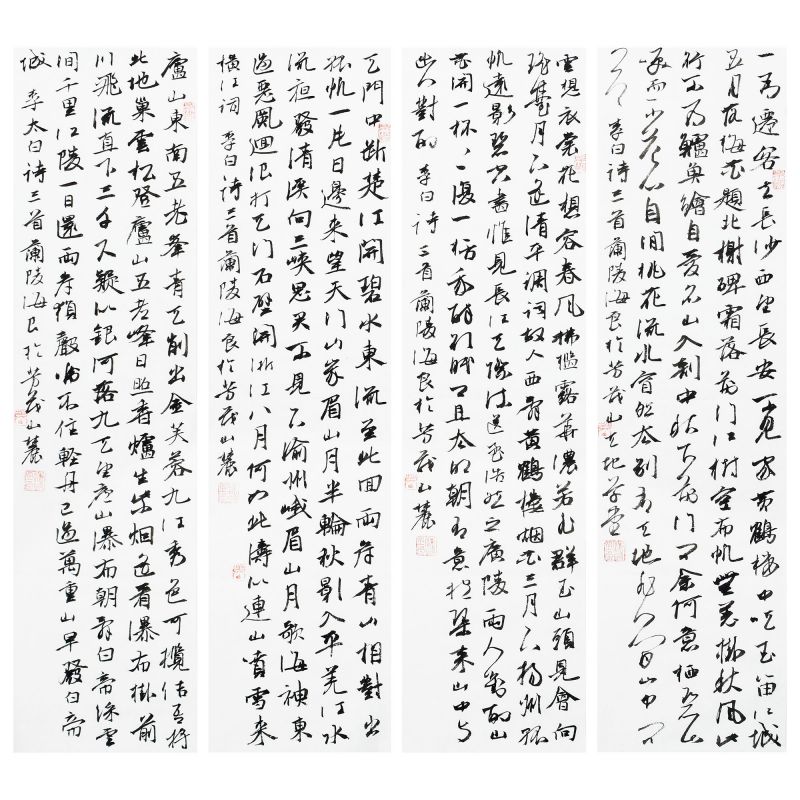 一為遷客去長沙西望長安不見家黃鶴樓中吹玉笛江城
五月落梅花題北榭碑霜落荊門江樹空布帆無恙掛秋風此
行不為鱸魚鱠自愛名山入剡中秋下荊門問余何意栖碧山
笑而不答心自閒桃花流水窅然去別有天地非人間山中問
答 李白詩三首蘭陵海良於芳茂山天地草堂
雲想衣裳花想容春風拂檻露華濃若非群玉山頭見會向
瑤臺月下逢清平調詞故人西辭黃鶴樓烟花三月下揚州孤
帆遠影碧空盡惟見長江天際流送孟浩然之廣陵兩人對酌山
花開一杯一復一杯我醉欲眠卿且去明朝有意抱琴來山中與
幽人對酌 李白詩三首蘭陵海良於芳茂山麓
天門中斷楚江開碧水東流至此回兩岸青山相對出
孤帆一片日邊來望天門山峨眉山月半輪秋影入平羌江水
流夜發清溪向三峽思君不見下渝州峨眉山月歌海神東
過惡風迴浪打天門石壁開浙江八月何如此濤似連山噴雪來
橫江詞 李白詩三首蘭陵海良於芳茂山麓
廬山東南五老峰青天削出金芙蓉九江秀色可攬結吾將
此地巢雲松登廬山五老峰日照香爐生紫烟遙看瀑布掛前
川飛流直下三千尺疑似銀河落九天望廬山瀑布朝辭白帝彩雲
間千里江陵一日還兩岸猿聲啼不住輕舟已過萬重山早發白帝
城 李太白詩三首蘭陵海良於芳茂山麓